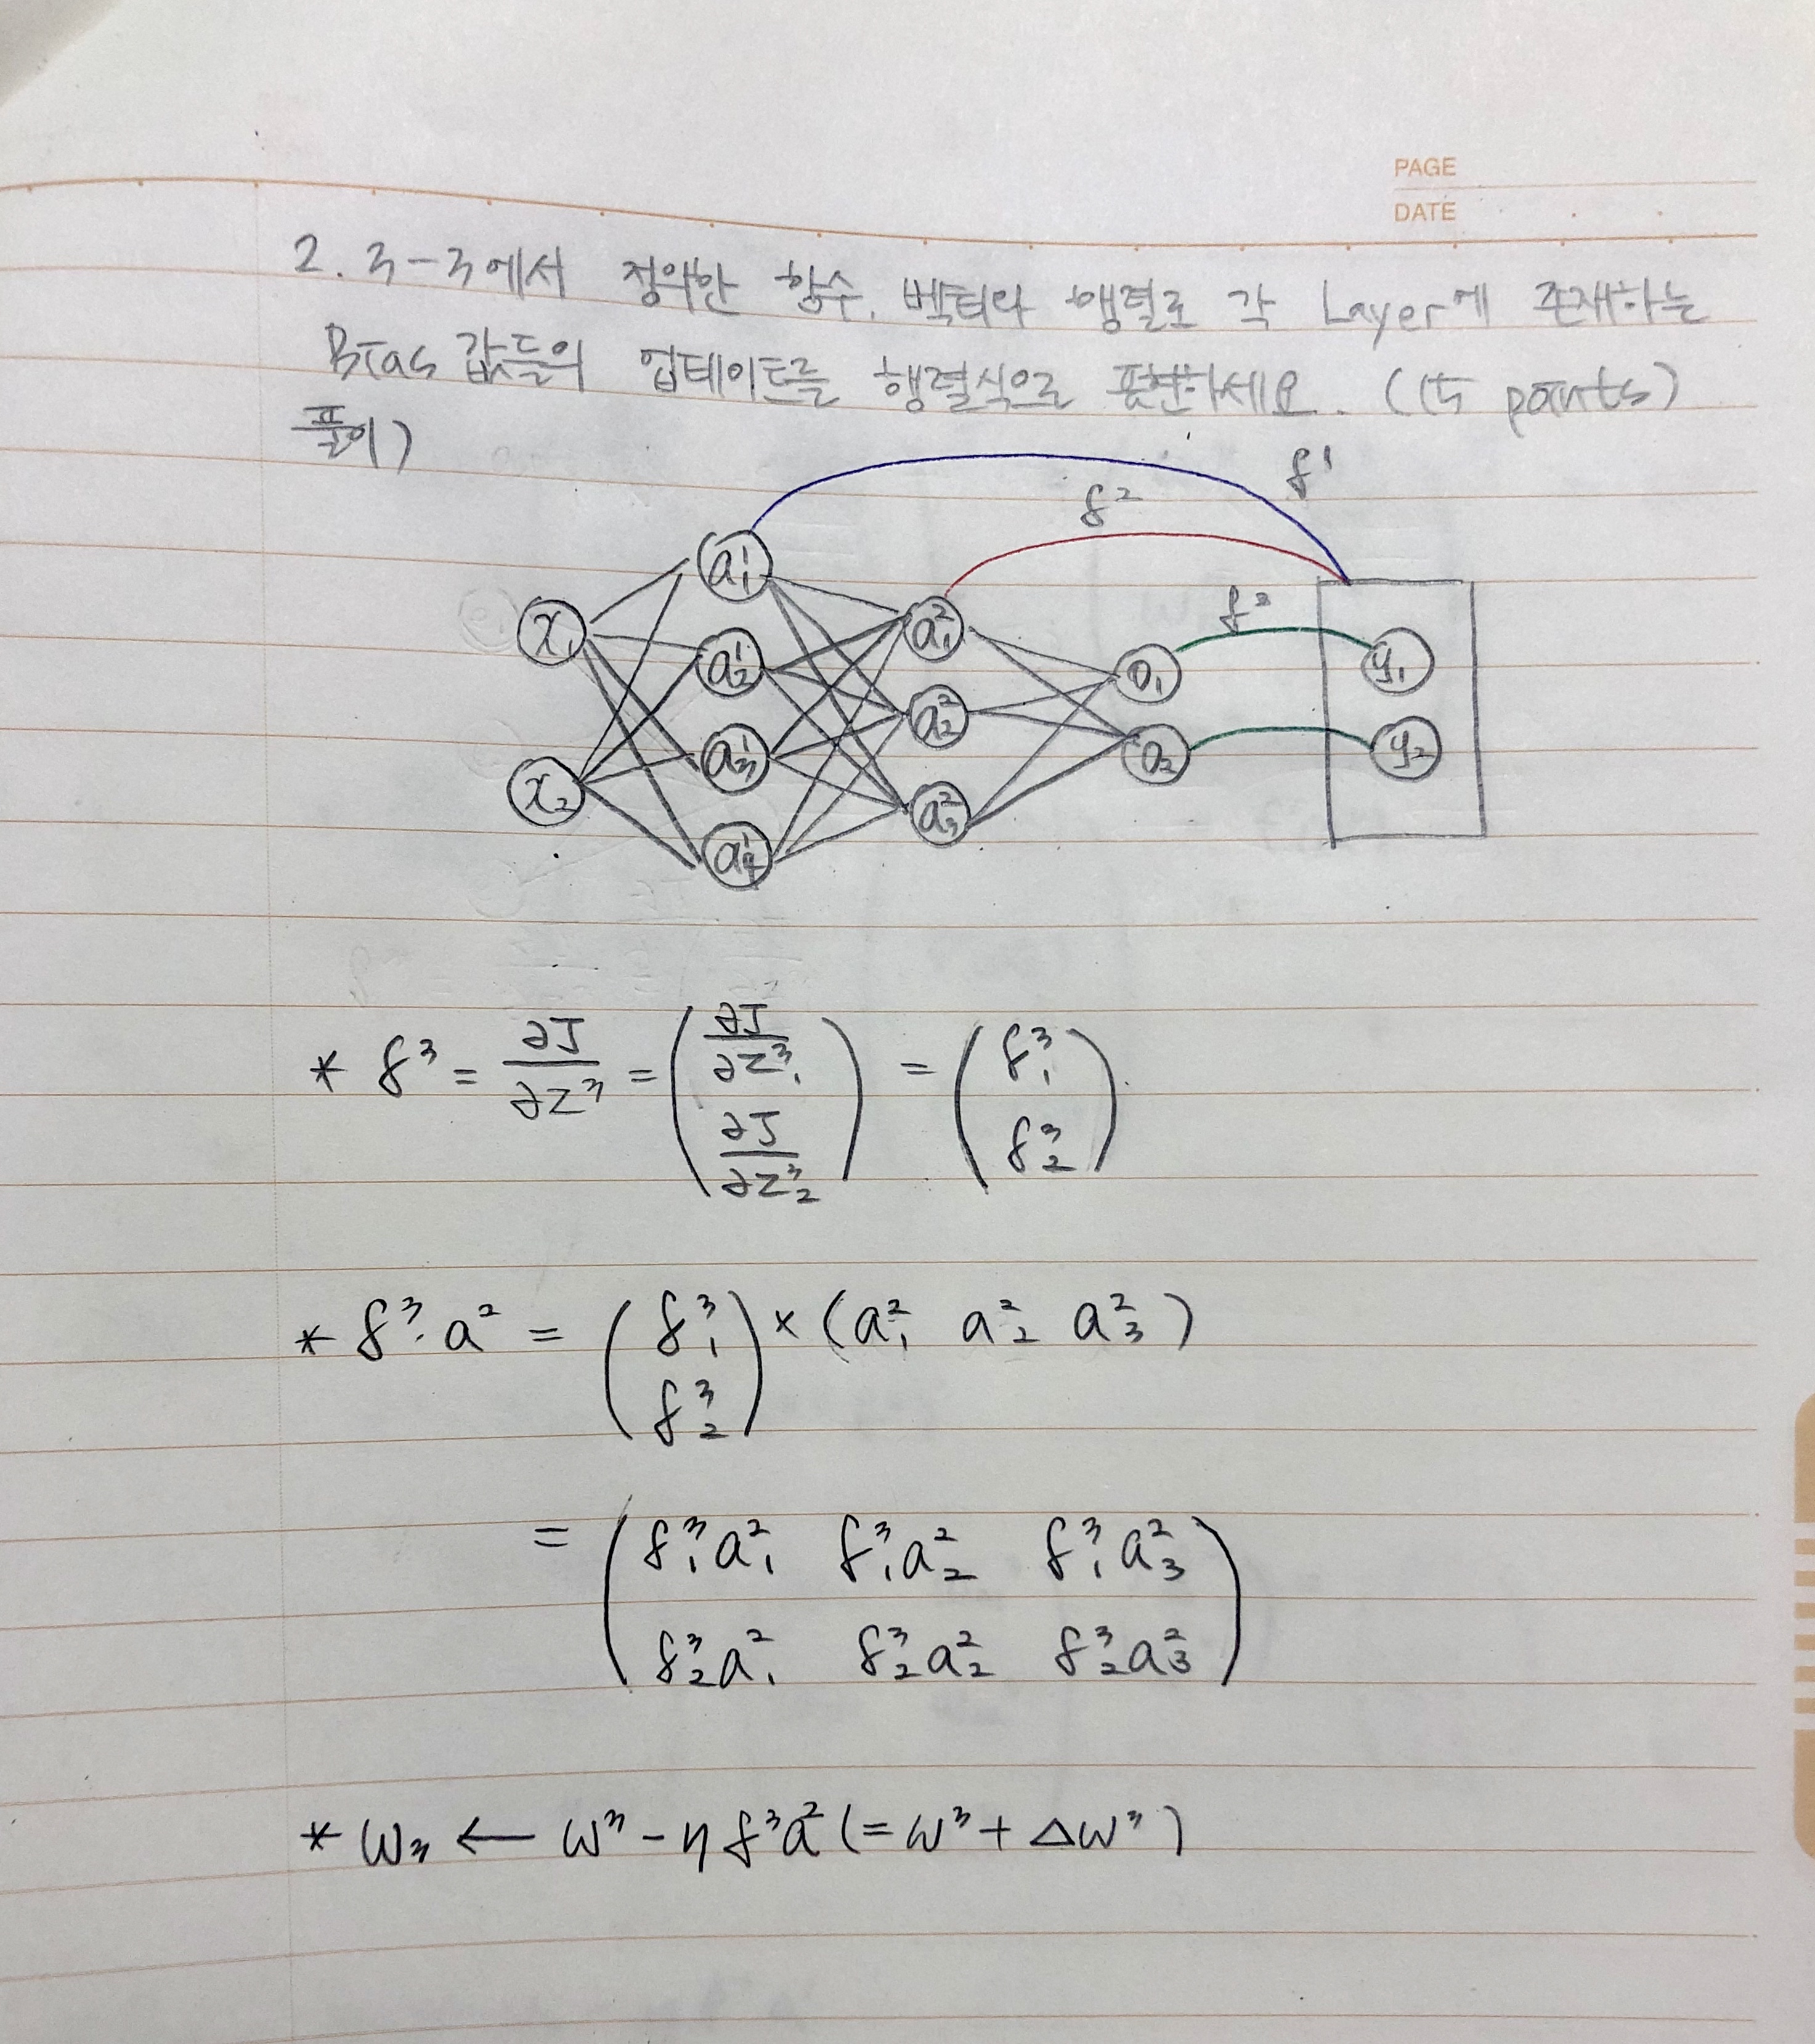 PAGE
DATE
2. 3-3에서 정의한 함수, 벡터와 행렬로 각 Layer에 존재하는
Bias 값들의 업데이트를 행렬식으로 표현하세요. (15 points)
풀이)
δ¹
δ²
δ³
x₁ x₂
a¹₁ a¹₂ a¹₃ a¹₄
a²₁ a²₂ a²₃
o₁ o₂
y₁ y₂
* δ³ = ∂J/∂z³ = (∂J/∂z³₁ ∂J/∂z³₂) = (δ³₁ δ³₂)
* δ³·a² = (δ³₁ δ³₂) × (a²₁ a²₂ a²₃)
= (δ³₁a²₁ δ³₁a²₂ δ³₁a²₃
δ³₂a²₁ δ³₂a²₂ δ³₂a²₃)
* W₃ ← W³ - η δ³a² (= W³ + ΔW³)